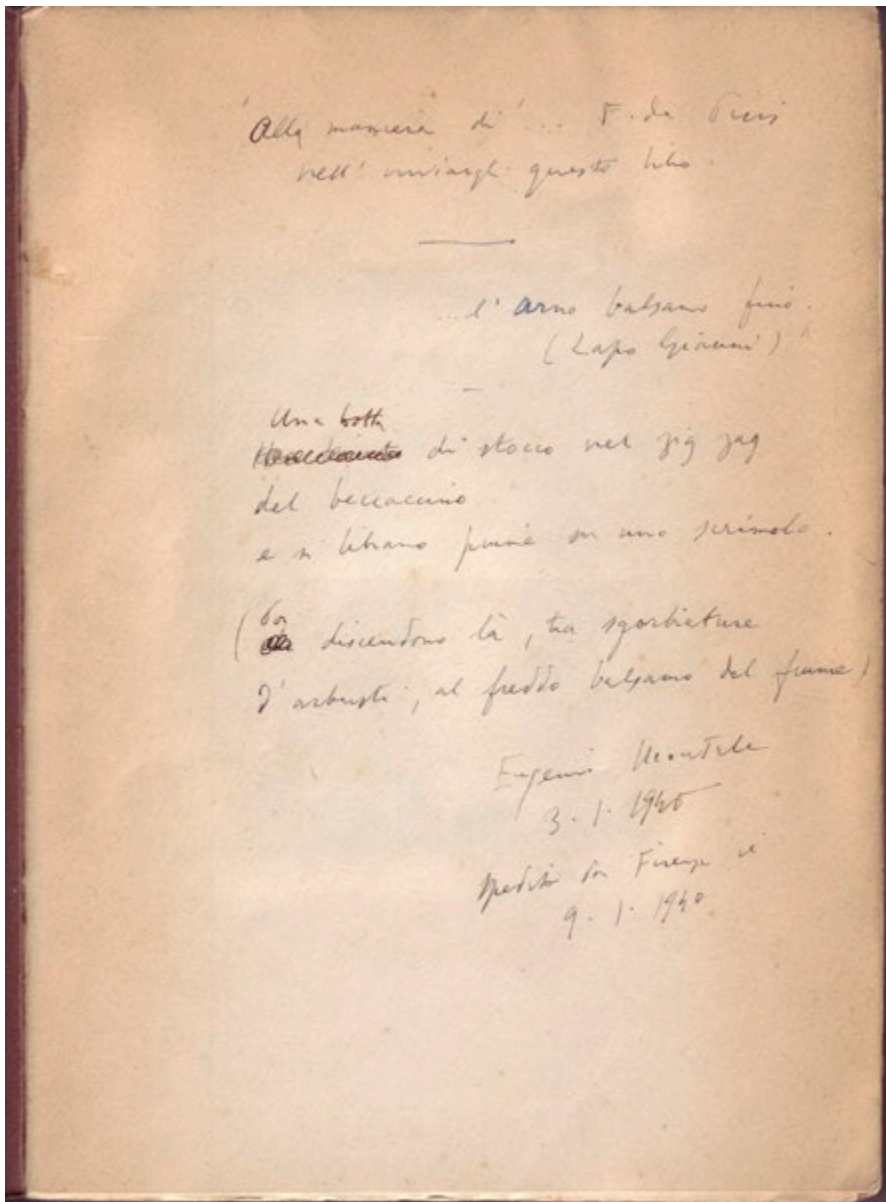 'Alla maniera di'... F. de Pisis
nell' inviargli questo libro.
...l' Arno balsamo fino.
(Lapo Gianni)
Una botta
di stocco nel zig zag
del beccaccino
e si librano piume su uno scrimolo.
(Poi discendono là, tra sgorbiature
d'arbusti, al freddo balsamo del fiume)
Eugenio Montale
3. 1. 1940
Spedito da Firenze il
9. 1. 1940